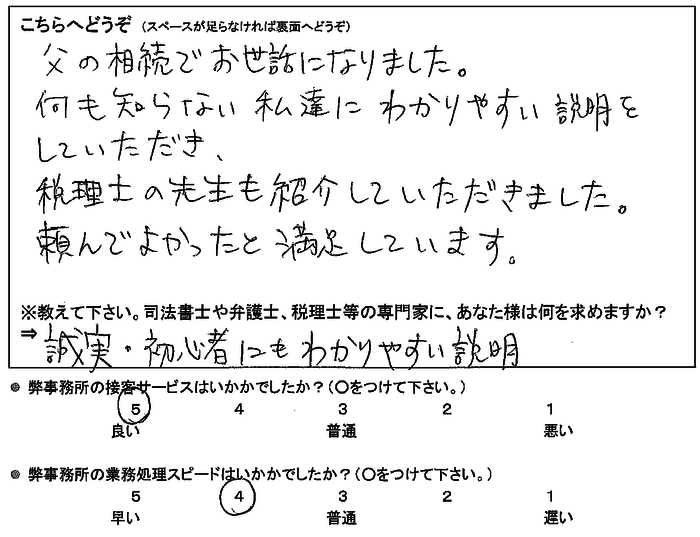 こちらへどうぞ (スペースが足らなければ裏面へどうぞ)
父の相続でお世話になりました。
何も知らない私達にわかりやすい説明を
していただき、
税理士の先生も紹介していただきました。
頼んでよかったと満足しています。
※教えて下さい。司法書士や弁護士、税理士等の専門家に、あなた様は何を求めますか?
⇒ 誠実・初心者にもわかりやすい説明
● 弊事務所の接客サービスはいかかでしたか?(○をつけて下さい。)
5 4 3 2 1
良い 普通 悪い
● 弊事務所の業務処理スピードはいかかでしたか?(○をつけて下さい。)
5 4 3 2 1
早い 普通 遅い